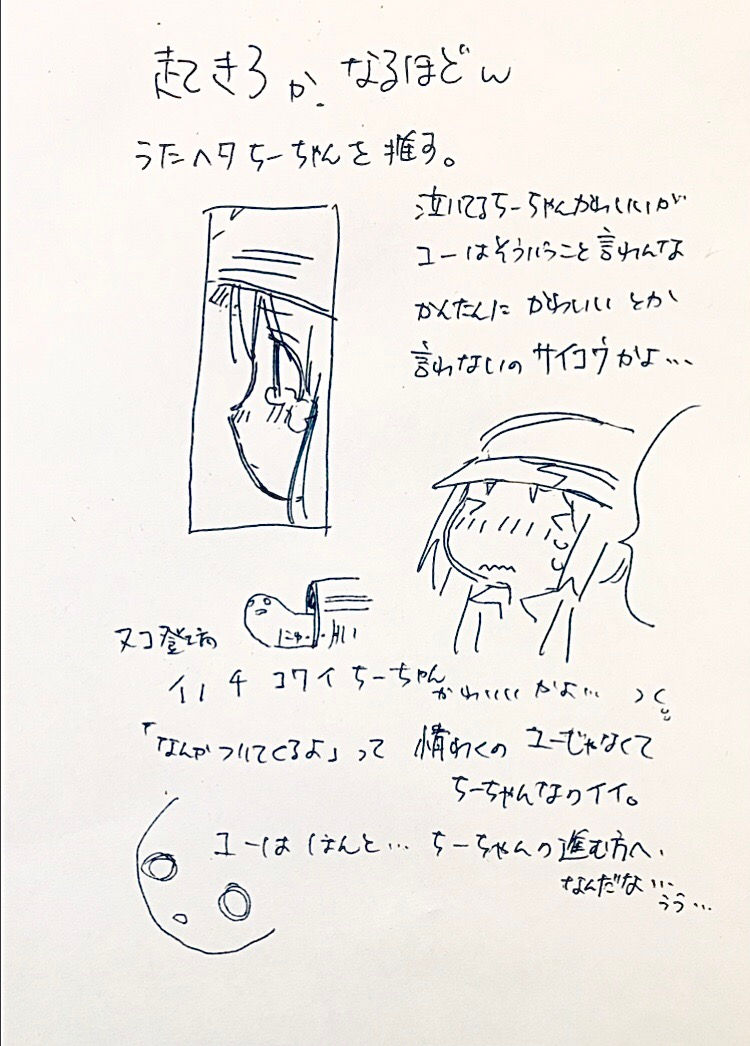 起きろか。なるほどん
うたヘタちーちゃんを推す。
泣いてるちーちゃんかわいいが
ユーはそういうこと言わんな
かんたんに かわいい とか
言わないの サイコウかよ…
ヌコ登場
にゅ・・
イチ コワイ ちーちゃん
かわいい かよ…
「なんかついてくるよ」って 情わくの ユーじゃなくて
ちーちゃんなのイイ。
ユーは ほんと… ちーちゃんの進む方へ
なんだな…
うう…